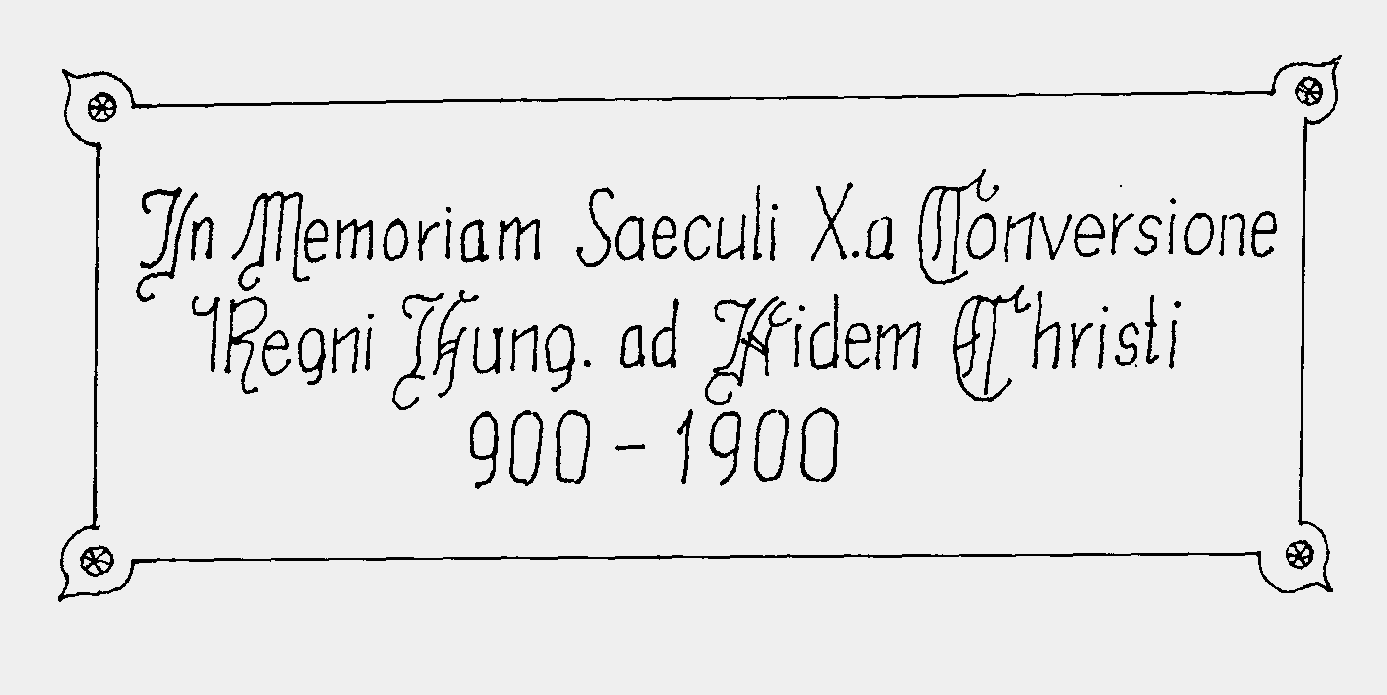 In Memoriam Saeculi X.a Conversione
Regni Hung. ad Fidem Christi
900 – 1900